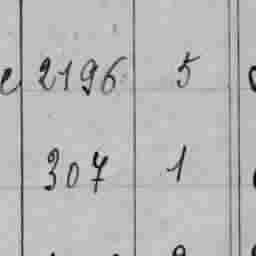 2196 5
307 1